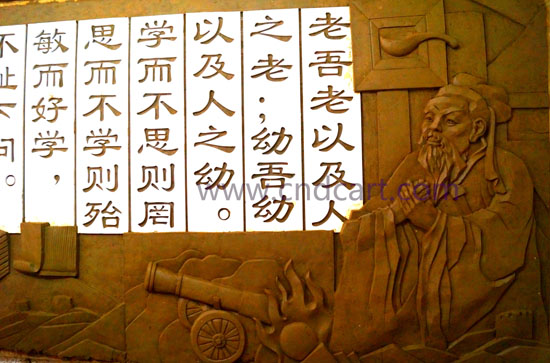 老吾老以及人
之老；幼吾幼
以及人之幼。
学而不思则罔
思而不学则殆
敏而好学，
不耻下问。
www.cndcart.com